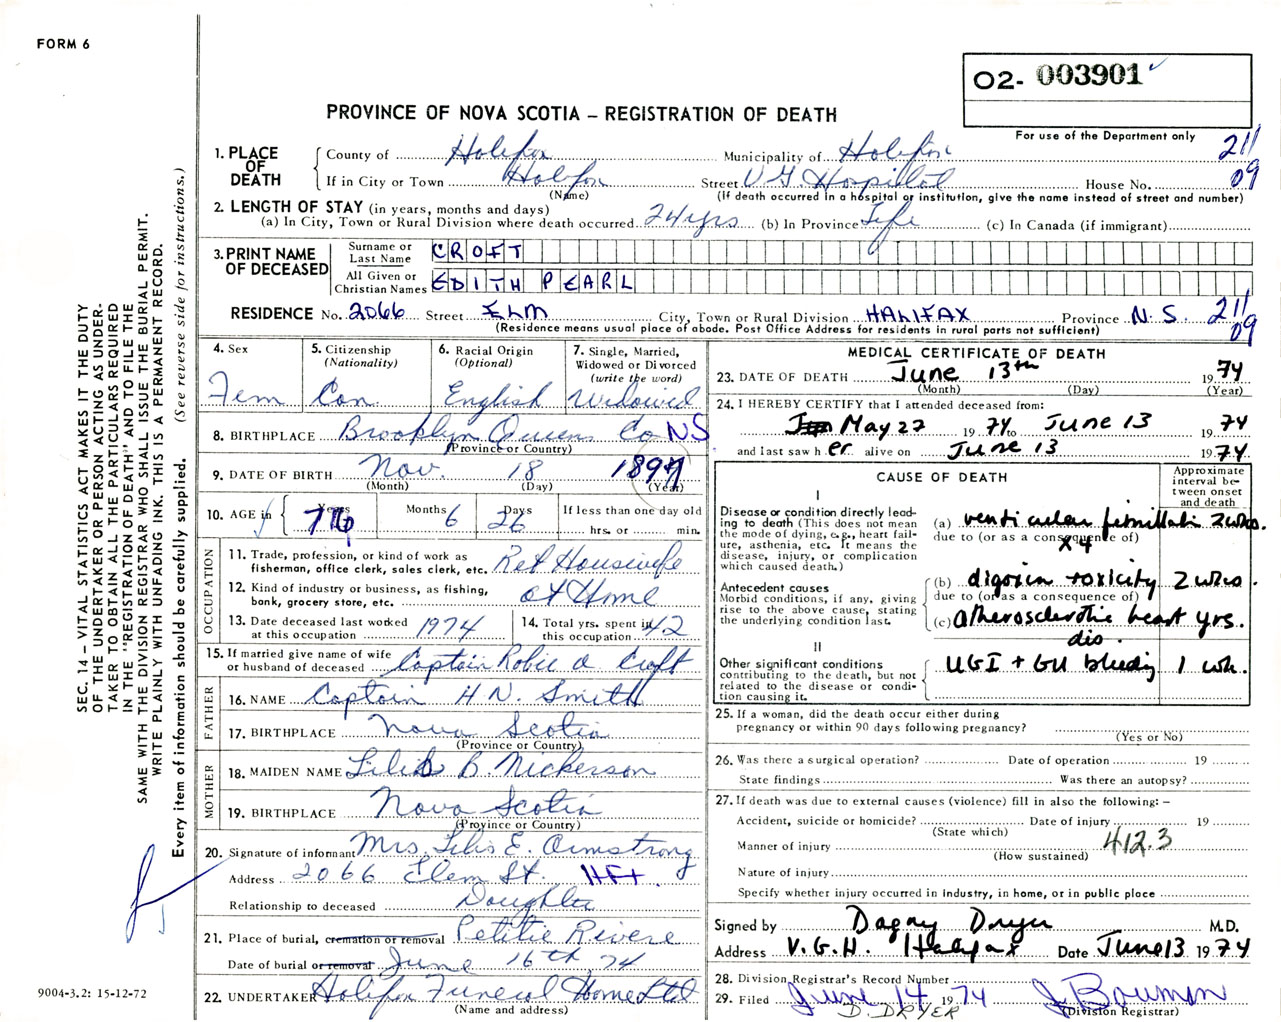 FORM 6
O2- 003901
For use of the Department only
PROVINCE OF NOVA SCOTIA – REGISTRATION OF DEATH
1. PLACE OF DEATH
County of Halifax Municipality of Halifax 21/
If in City or Town Halifax Street V G Hospital House No. 09
(Name) (If death occurred in a hospital or institution, give the name instead of street and number)
2. LENGTH OF STAY (in years, months and days)
(a) In City, Town or Rural Division where death occurred 24 yrs (b) In Province Life (c) In Canada (if immigrant)
3. PRINT NAME OF DECEASED
Surname or Last Name CROFT
All Given or Christian Names EDITH PEARL
RESIDENCE No. 2066 Street ELM City, Town or Rural Division HALIFAX Province N.S. 21/
(Residence means usual place of abode. Post Office Address for residents in rural parts not sufficient) 09
4. Sex
Fem
5. Citizenship
(Nationality)
Can
6. Racial Origin
(Optional)
English
7. Single, Married,
Widowed or Divorced
(write the word)
Widowed
8. BIRTHPLACE Brooklyn Queens Co NS
(Province or Country)
9. DATE OF BIRTH Nov. 18 1897
(Month) (Day) (Year)
10. AGE in Years 76 Months 6 Days 26 If less than one day old
hrs. or min.
OCCUPATION
11. Trade, profession, or kind of work as
fisherman, office clerk, sales clerk, etc. Ret Housewife
12. Kind of industry or business, as fishing,
bank, grocery store, etc. at Home
13. Date deceased last worked
at this occupation 1974
14. Total yrs. spent in
this occupation 42
15. If married give name of wife
or husband of deceased Captain Robie A Croft
FATHER
16. NAME Captain H N. Smith
17. BIRTHPLACE Nova Scotia
(Province or Country)
MOTHER
18. MAIDEN NAME B. Nickerson
19. BIRTHPLACE Nova Scotia
(Province or Country)
20. Signature of informant Mrs. E. Armstrong
Address 2066 Elem St. HFX.
Relationship to deceased Daughter
21. Place of burial, cremation or removal Petitie Riviere
Date of burial or removal June 16th, 74
22. UNDERTAKER Halifax Funeral Home Ltd
(Name and address)
MEDICAL CERTIFICATE OF DEATH
23. DATE OF DEATH June 13th 1974
(Month) (Day) (Year)
24. I HEREBY CERTIFY that I attended deceased from:
May 27 1974 to June 13 1974
and last saw her alive on June 13 1974.
CAUSE OF DEATH
Approximate
interval be-
tween onset
and death
I
Disease or condition directly lead-
ing to death (This does not mean
the mode of dying, e.g., heart fail-
ure, asthenia, etc. It means the
disease, injury, or complication
which caused death.)
(a) ventricular fibrillation 2 wks.
due to (or as a consequence of)
x4
Antecedent causes
Morbid conditions, if any, giving
rise to the above cause, stating
the underlying condition last.
(b) digoxin toxicity 2 wks.
due to (or as a consequence of)
(c) atherosclerotic heart yrs.
dis.
II
Other significant conditions
contributing to the death, but not
related to the disease or condi-
tion causing it.
UGI + GU bleeding 1 wk.
25. If a woman, did the death occur either during
pregnancy or within 90 days following pregnancy?
(Yes or No)
26. Was there a surgical operation? Date of operation 19
State findings Was there an autopsy?
27. If death was due to external causes (violence) fill in also the following: –
Accident, suicide or homicide? Date of injury 19
(State which)
Manner of injury 412.3
(How sustained)
Nature of injury
Specify whether injury occurred in industry, in home, or in public place
Signed by Dagny Dryer M.D.
Address V.G.H. Halifax Date June 13 1974
28. Division Registrar's Record Number
29. Filed June 14 1974 J Bowman
D. DRYER (Division Registrar)
SEC. 14 – VITAL STATISTICS ACT MAKES IT THE DUTY
OF THE UNDERTAKER OR PERSON ACTING AS UNDER-
TAKER TO OBTAIN ALL THE PARTICULARS REQUIRED
IN THE "REGISTRATION OF DEATH" AND TO FILE THE
SAME WITH THE DIVISION REGISTRAR WHO SHALL ISSUE THE BURIAL PERMIT.
WRITE PLAINLY WITH UNFADING INK. THIS IS A PERMANENT RECORD.
Every item of information should be carefully supplied. (See reverse side for instructions.)
9004-3.2: 15-12-72